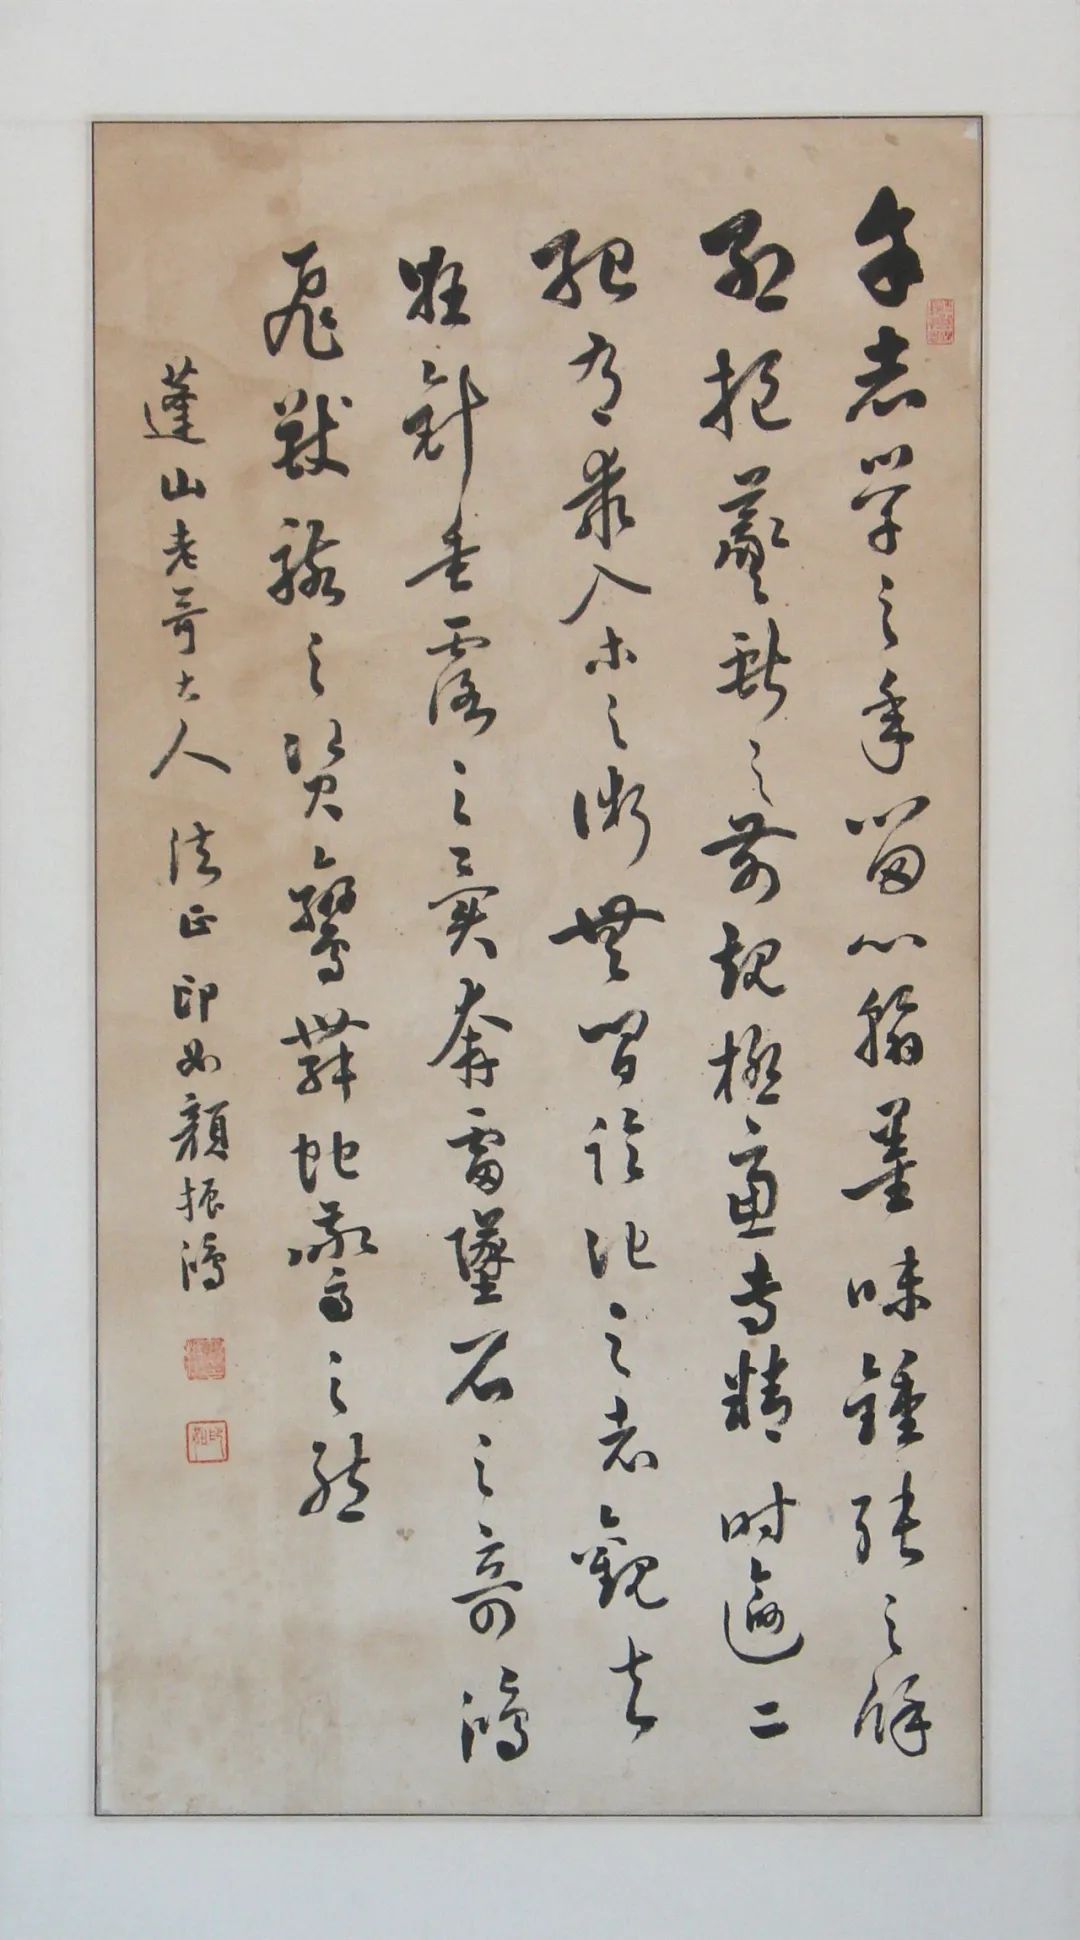 余志學之年留心翰墨味鍾張之餘
烈挹羲獻之前規極慮專精時逾二
紀有乖入木之術無間臨池之志觀夫
懸針垂露之異奔雷墜石之奇鴻
飛獸駭之資鸞舞蛇驚之態
蓬山老哥大人 法正 印如顏振鴻